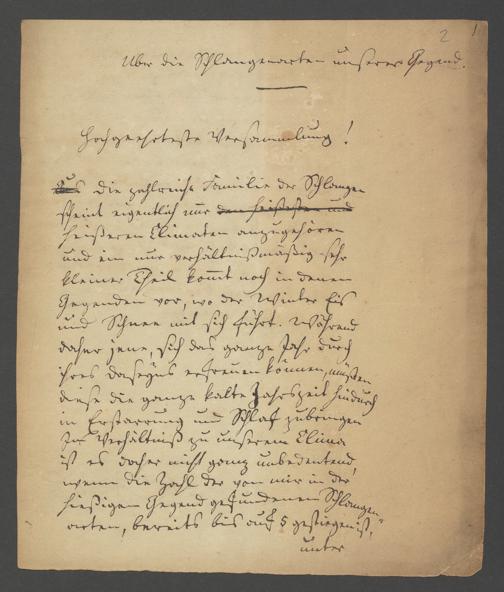 2 1
Über die Schlangenarten unserer Gegend.
Hochgeehrteste Versammlung!
die zahlreiche Familie der Schlangen
scheint eigentlich nur den heißesten und
heißeren Climaten anzugehören
und ein nur verhältnißmäßig sehr
kleiner Theil kommt noch in denen
Gegenden vor, wo der Winter Eis
und Schnee mit sich führt. Während
daher jene, sich das ganze Jahr durch
ihres Daseyns erfreuen können, müßen
diese die ganze kalte Jahrszeit hindurch
in Erstarrung und Schlaf zubringen
Im Verhältniß zu unserem Clima
ist es daher nicht ganz unbedeutend,
wenn die Zahl der von mir in der
hiesigen Gegend gefundenen Schlangen-
arten, bereits bis auf 5 gestiegen ist,
unter